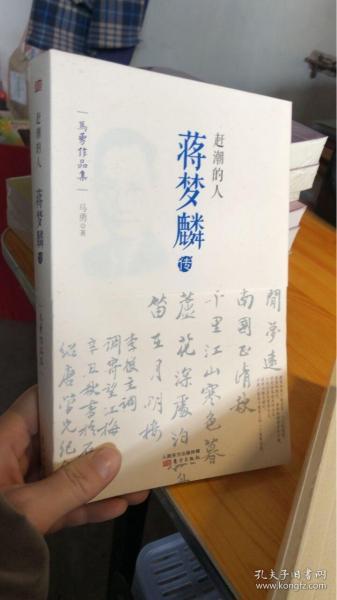 赶潮的人
蒋梦麟
传
馬勇作品集
马勇 著
閒夢遠
南國正清秋
千里江山寒色暮
蘆花深處泊孤舟
笛在月明樓
李後主詞
調寄望江梅
赶潮的人
蒋梦麟
传
人民东方出版传媒
东方出版社
孔夫子旧书网
www.kongfz.com